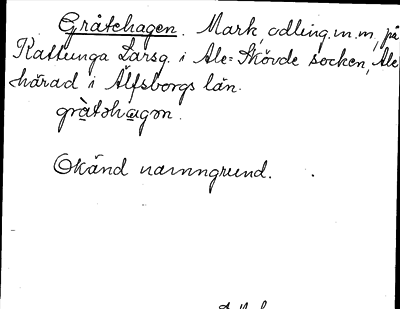 Gråtehagen. Mark, odling m.m, på
Kattunga Larsg. i Ale=Skövde socken, Ale
härad i Älfsborgs län.
gråtəhagən.
Okänd namngrund.